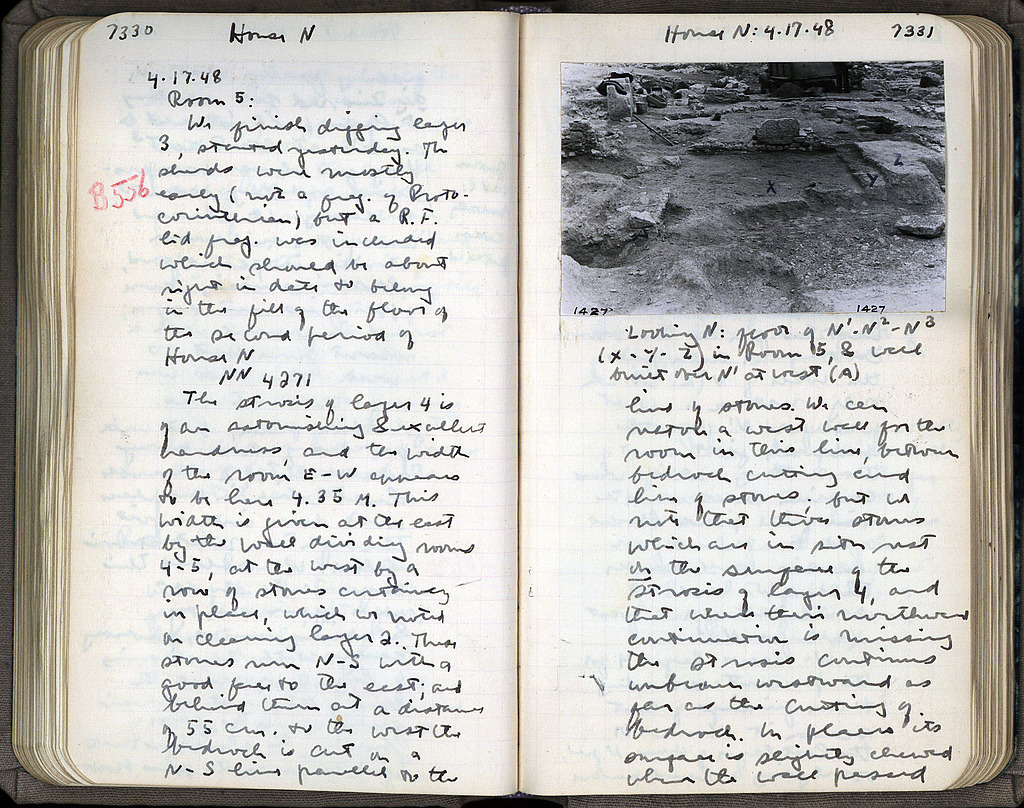 7330 House N
4.17.48
Room 5:
We finish digging layer
3, started yesterday. The
sherds were mostly
B556
early (not a frag. of Proto-
corinthian) but a R.F.
lid frag. was included
which should be about
right in date to belong
in the fill of the floor of
the second period of
House N
NN 4271
The strosis of layer 4 is
of an astonishing & excellent
hardness, and the width
of the room E-W appears
to be here 4.35 M. This
width is given at the east
by the wall dividing rooms
4-5, at the west by a
row of stones
in place, which we noted
on cleaning layer 2. These
stones run N-S with a
good face to the east; and
behind them at a distance
of 55 cm. to the west the
bedrock is cut on a
N-S line parallel to the
House N: 4.17.48 7331
X Y Z
1427 1427
Looking N: floor of N¹-N²-N³
(X-Y-Z) in Room 5, & wall
built over N¹ at west (A)
line of stones. We can
restore a west wall for the
room in this line, between
bedrock cutting and
line of stones. But we
note that these stones
which are in situ rest
on the surface of the
strosis of layer 4, and
that where their northward
continuation is missing
the strosis continues
unbroken westward as
far as the cutting of
bedrock. In places its
surface is slightly chewed
where the wall passed